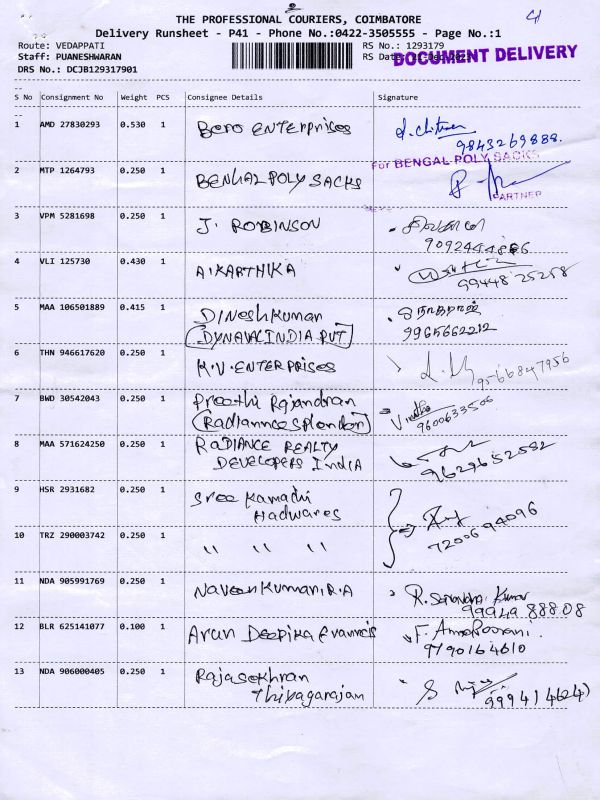 4
THE PROFESSIONAL COURIERS, COIMBATORE
Delivery Runsheet - P41 - Phone No.:0422-3505555 - Page No.:1
Route: VEDAPPATI RS No.: 1293179
Staff: PUANESHWARAN RS Date:
DOCUMENT DELIVERY
DRS No.: DCJB129317901
S No Consignment No Weight PCS Consignee Details Signature
1 AMD 27830293 0.530 1 Bero ENTERPRISES
9843269888.
For BENGAL POLY SACKS
2 MTP 1264793 0.250 1 BENGAL POLY SACKS
PARTNER
3 VPM 5281698 0.250 1 J. ROBBINSON
9092444886
4 VLI 125730 0.430 1 A.KARTHIKA
99448 25258
5 MAA 106501889 0.415 1 DINeshkumar
DYNAVAC INDIA PVT
9965662212
6 THN 946617620 0.250 1 K.V. ENTERPRISES 9566847956
7 BWD 30542043 0.250 1 Preethi Rajandran
(Radiannce splendor)
9600633506
8 MAA 571624250 0.250 1 RaDIANCE REALTY
DEVELOPERS INDIA
9629652582
9 HSR 2931682 0.250 1 Sree Kamadhi
Hadwares
72006 94096
10 TRZ 290003742 0.250 1 " " "
11 NDA 905991769 0.250 1 Naveen Kumar.R.A R. Kumar
99949 88808
12 BLR 625141077 0.100 1 Arun Deepika francis F.
9790164610
13 NDA 906000405 0.250 1 Rajasekhran
Thiyagarajam